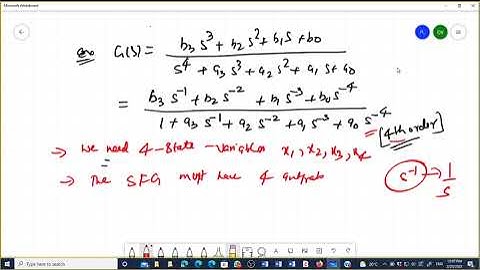 Microsoft Whiteboard
G(s) = b3 s^3 + b2 s^2 + b1 s + b0
s^4 + a3 s^3 + a2 s^2 + a1 s + a0
= b3 s^-1 + b2 s^-2 + b1 s^-3 + b0 s^-4
1 + a3 s^-1 + a2 s^-2 + a1 s^-3 + a0 s^-4
[4th order]
→ We need 4-State-Variables x1, x2, x3, x4
→ The SFG must have 4
s^-1 → 1/s
Type here to search
20°C
ENG